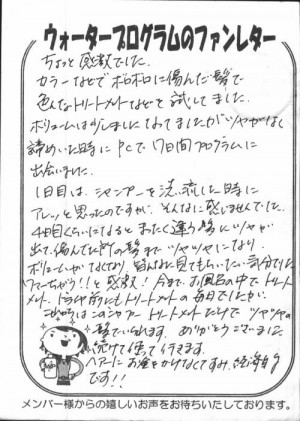 ウォータープログラムのファンレター
ちょっと感激でした。
カラーなどでボロボロに傷んだ髪で
色んなトリートメントなどを試してました。
ボリュームは少しましになってましたがツヤがなく
諦めいた時にPCで7日間プログラムに
出会いました。
1日目は、シャンプーを洗い流した時に
アレッと思ったのですが、そんなに感じませんでした。
4日目くらいになるとまったく違う髪にツヤが
出て、傷んでた所の髪までツヤツヤになり、
ボリュームがなくなり、皆んなに見てもらいたい気分でした
ワァーちがう!!と感激!今まで、お風呂の中でトリート
メント、ドライヤ前にもトリートメントの毎日でしたが、
これからはこのシャンプー トリートメントだけでツヤツヤの
髪でいられます。ありがとうございました
続けて使って行きます。
ヘアーにお金をかけなくてすみ、経済的
です!!
メンバー様からの嬉しいお声をお待ちいたしております。